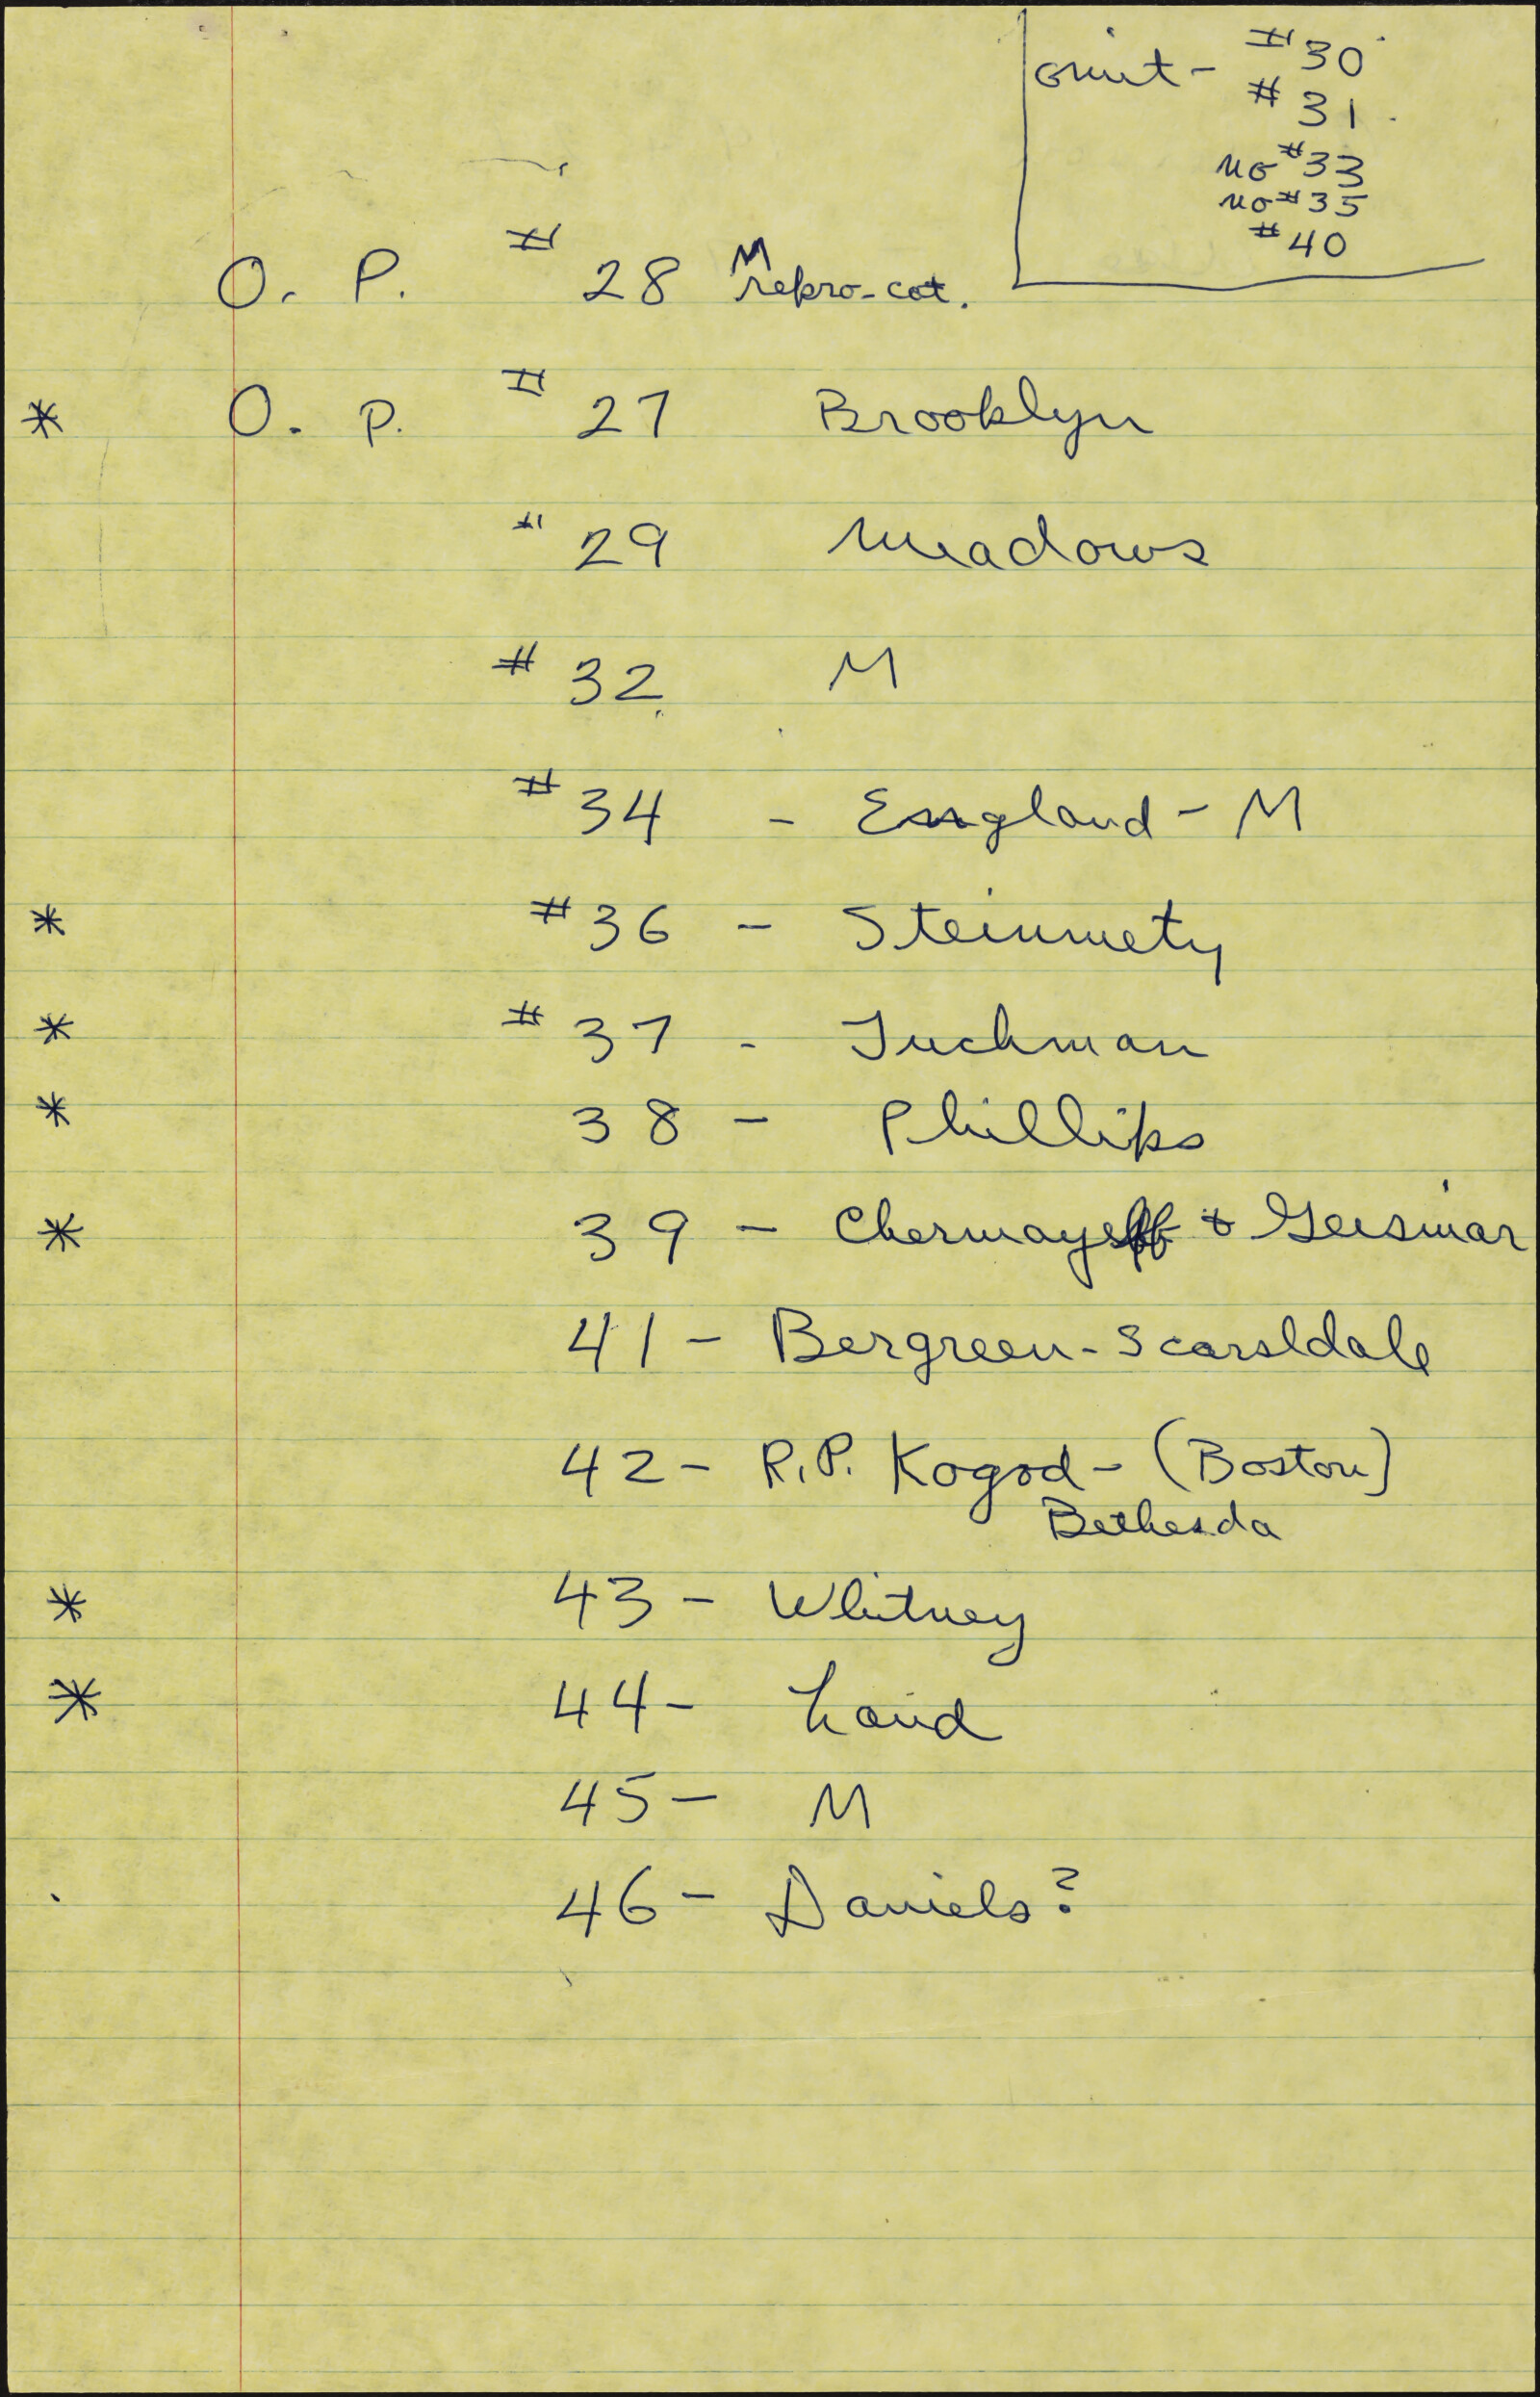 omit - #30
#31
no #33
no #35
#40
O. P. #28 M repro-cat.
* O. P. #27 Brooklyn
#29 Meadows
#32 M
#34 - England - M
* #36 - Steinmetz
* #37 - Tuchman
* 38 - Phillips
* 39 - Chermayeff & Geismar
41 - Bergreen - Scarsldale
42 - R.P. Kogod - (Boston)
Bethesda
* 43 - Whitney
* 44 - Laird
45 - M
46 - Daniels?